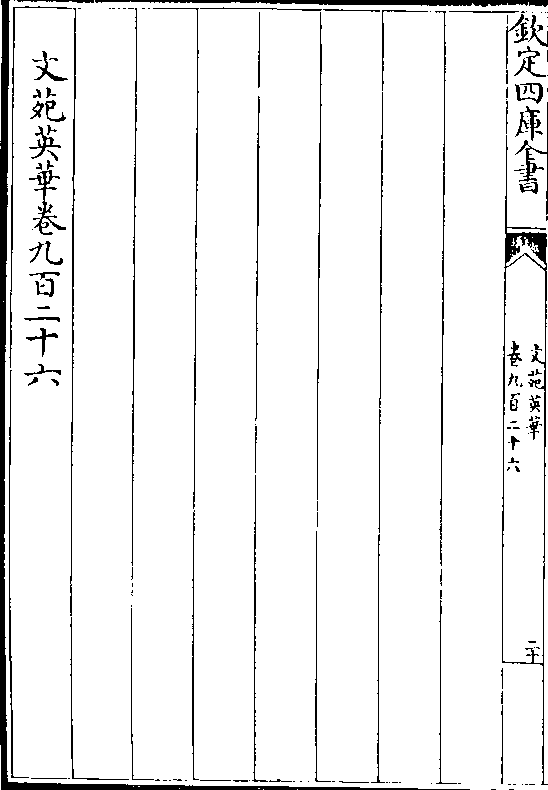 欽定四庫全書
文苑英華
卷九百二十六
二十
文苑英華卷九百二十六